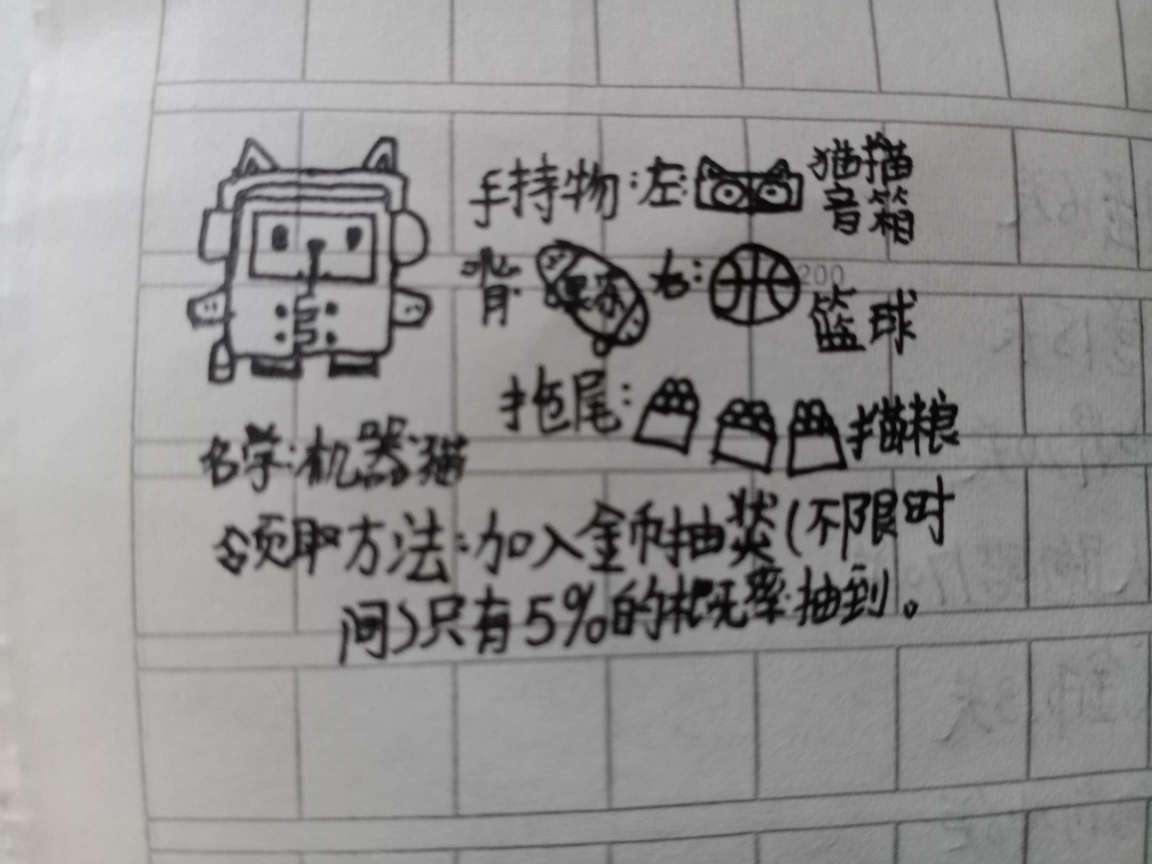 手持物:左: 猫猫音箱
背: 右: 篮球
200
拖尾: 猫粮
名字:机器猫
领取方法:加入金币抽奖(不限时
间)只有5%的概率抽到。